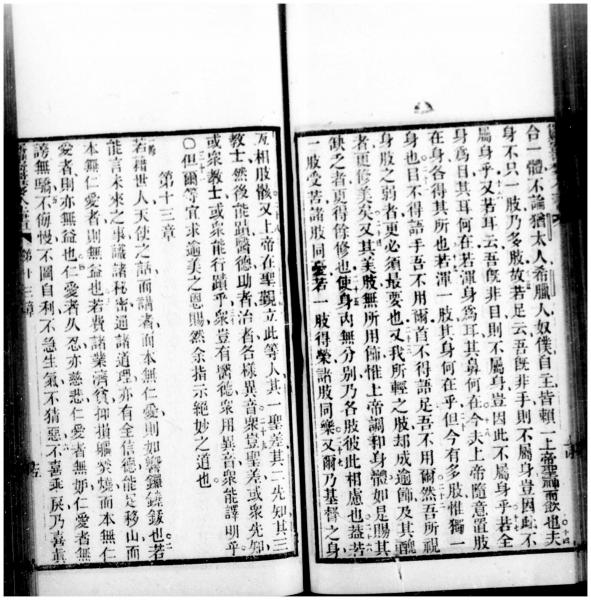 台一體不論猶太人希臘人奴僕自主皆賴一上帝聖神而飲也夫
身不只一肢乃多肢故若足云吾旣非手則不屬身豈因此不
屬身乎又若耳云吾旣非目則不屬身豈因此不屬身乎若全
身爲目其耳何在若渾身爲耳其鼻何在今夫上帝隨意置肢
在身各得其所也若渾一肢其身何在乎但今有多肢惟獨一
身也目不得語手吾不用爾首不得語足吾不用爾然吾所視
身肢之弱者更必須最要也又我所輕之肢却成逾飾及其醜
者更修美矣又其美肢無所用飾惟上帝調和身體如是賜其
缺之者更得餙修也使身內無分別乃各肢彼此相慮也蓋若
一肢受苦諸肢同憂若一肢得榮諸肢同樂又爾乃基督之身
互相肢骸又上帝在聖會立此等人其一聖差其二先知其三
教士然後能蹟醫德助者治者各樣異音衆豈聖差或衆先知
或衆教士或衆能行蹟乎衆豈有醫德衆用異音衆能譯明乎
〇但爾等宜求逾美之恩賜然余指示絕妙之道也
第十三章
若藉世人天使之話而講者而本無仁愛則如響鑼鐃鈸也若
能言未來之事識諸秘密通諸道理亦有全信德能使移山而
本無仁愛者則無益也若費諸業濟貧抑捐軀焚燒而本無仁
愛者則亦無益也仁愛者久忍亦慈悲仁愛者無妒仁愛者無
謗無驕不侮慢不圖自利不急生氣不猜惡不喜乖戾乃喜眞
第十三章